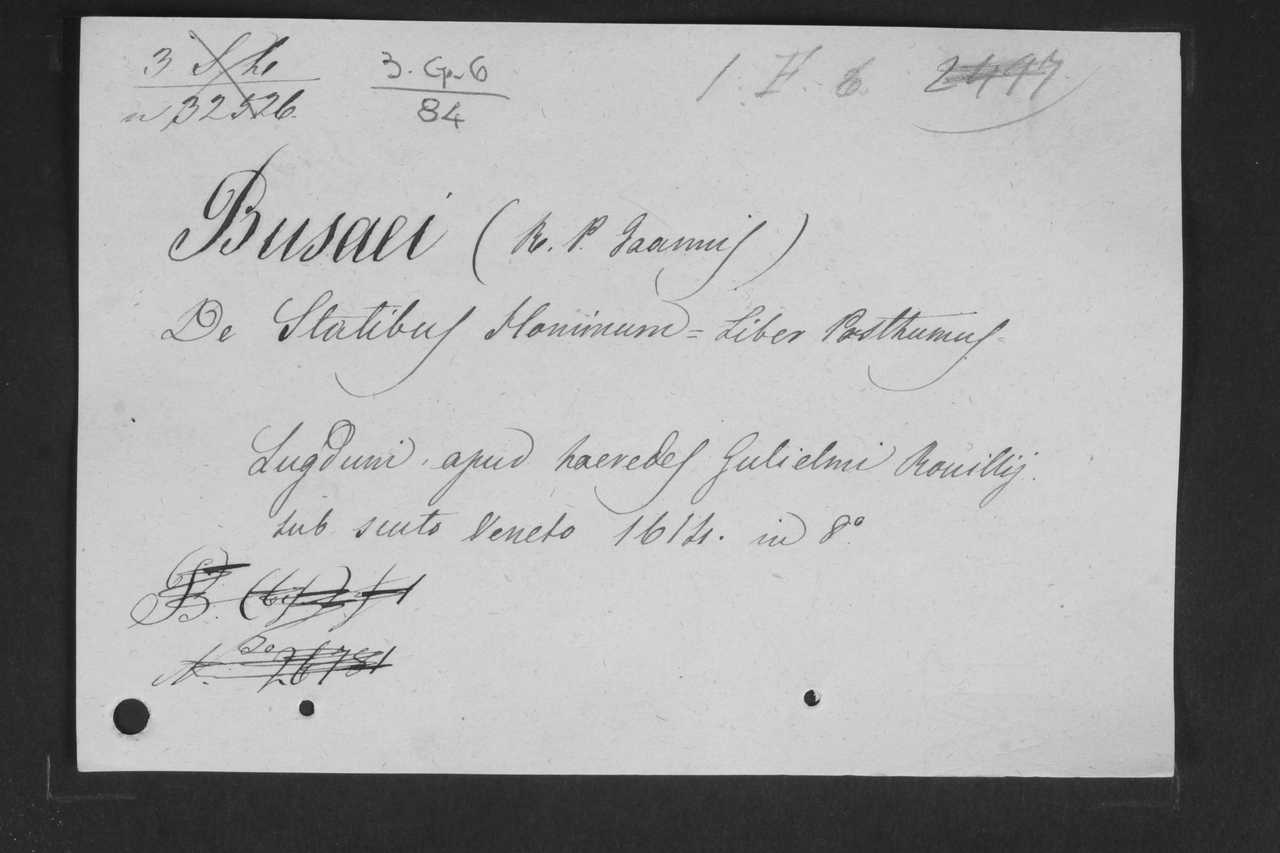 3
n 32526.
3. Gp. 6
84
1. F. 6. 2497
Busaei (R. P. Joannis)
De Statibus Hominum = Liber Posthumus =
Lugduni. apud haeredes Gulielmi Rouillij.
sub scuto Veneto 1614. in 8°
B.
N.° 26781